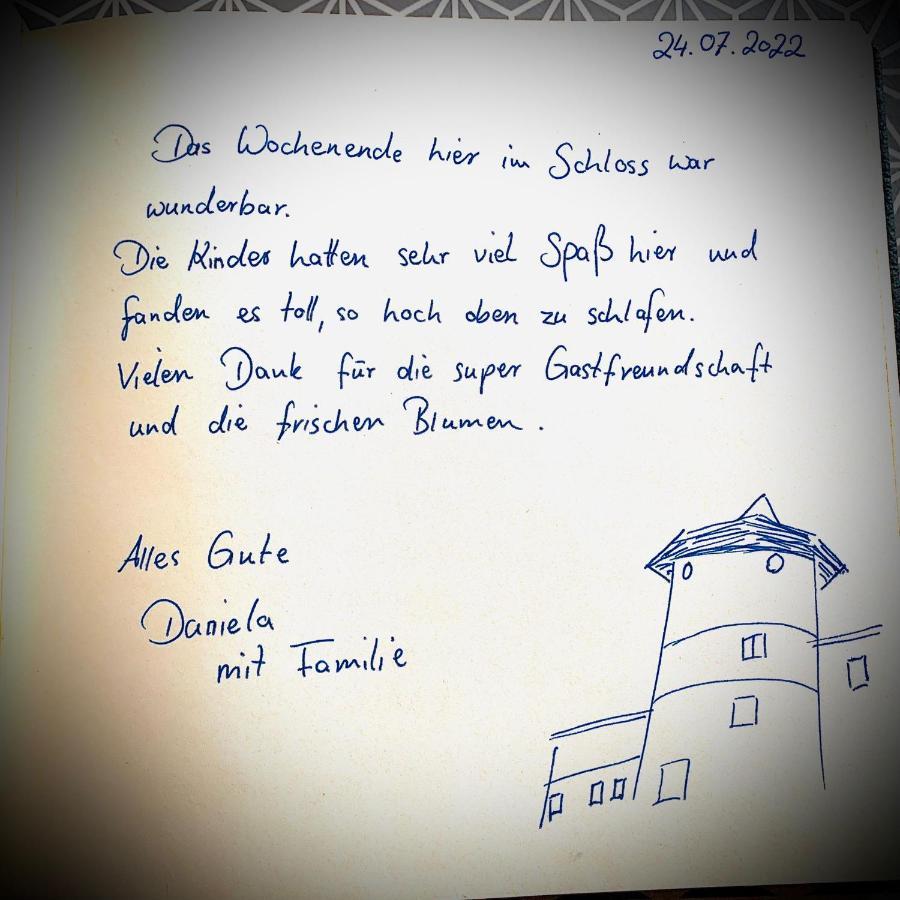 24.07.2022
Das Wochenende hier im Schloss war
wunderbar.
Die Kinder hatten sehr viel Spaß hier und
fanden es toll, so hoch oben zu schlafen.
Vielen Dank für die super Gastfreundschaft
und die frischen Blumen.
Alles Gute
Daniela
mit Familie